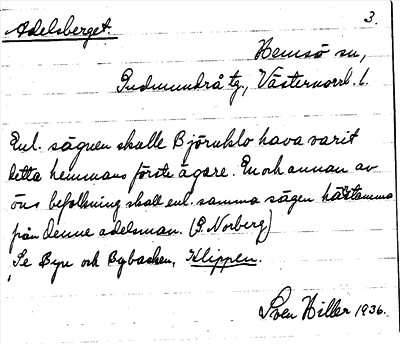 Adelsberget.
3.
Hemsö sn,
Gudmundrå tg., Västernorrl. l.
Enl. sägnen skulle Björnklo hava varit
detta hemmans förste ägare. En och annan av
öns befolkning skall enl. samma sägen härstamma
från denne adelsman. (P. Norberg)
Se Byn och Bybacken, Klippen.
Sven Hiller 1936.